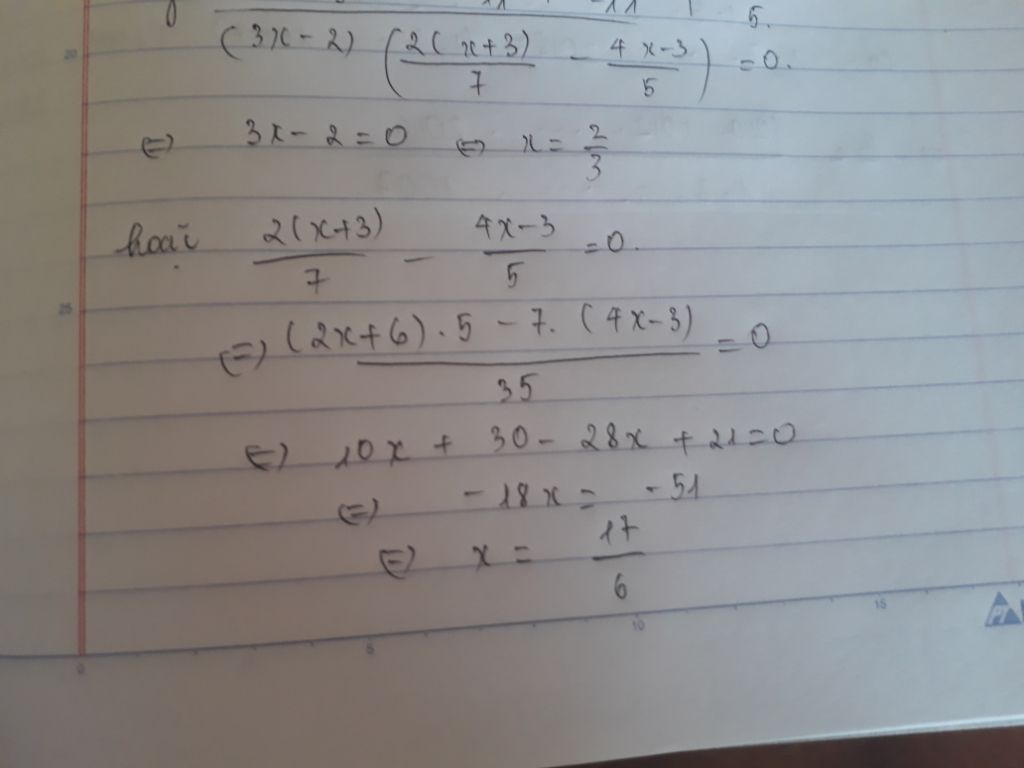 5.
(3x - 2) (2(x+3)/7 - 4x-3/5) = 0.
⇔ 3x - 2 = 0 ⇔ x = 2/3
hoặc 2(x+3)/7 - 4x-3/5 = 0.
⇔ (2x+6).5 - 7.(4x-3)/35 = 0
⇔ 10x + 30 - 28x + 21 = 0
⇔ -18x = -51
⇔ x = 17/6